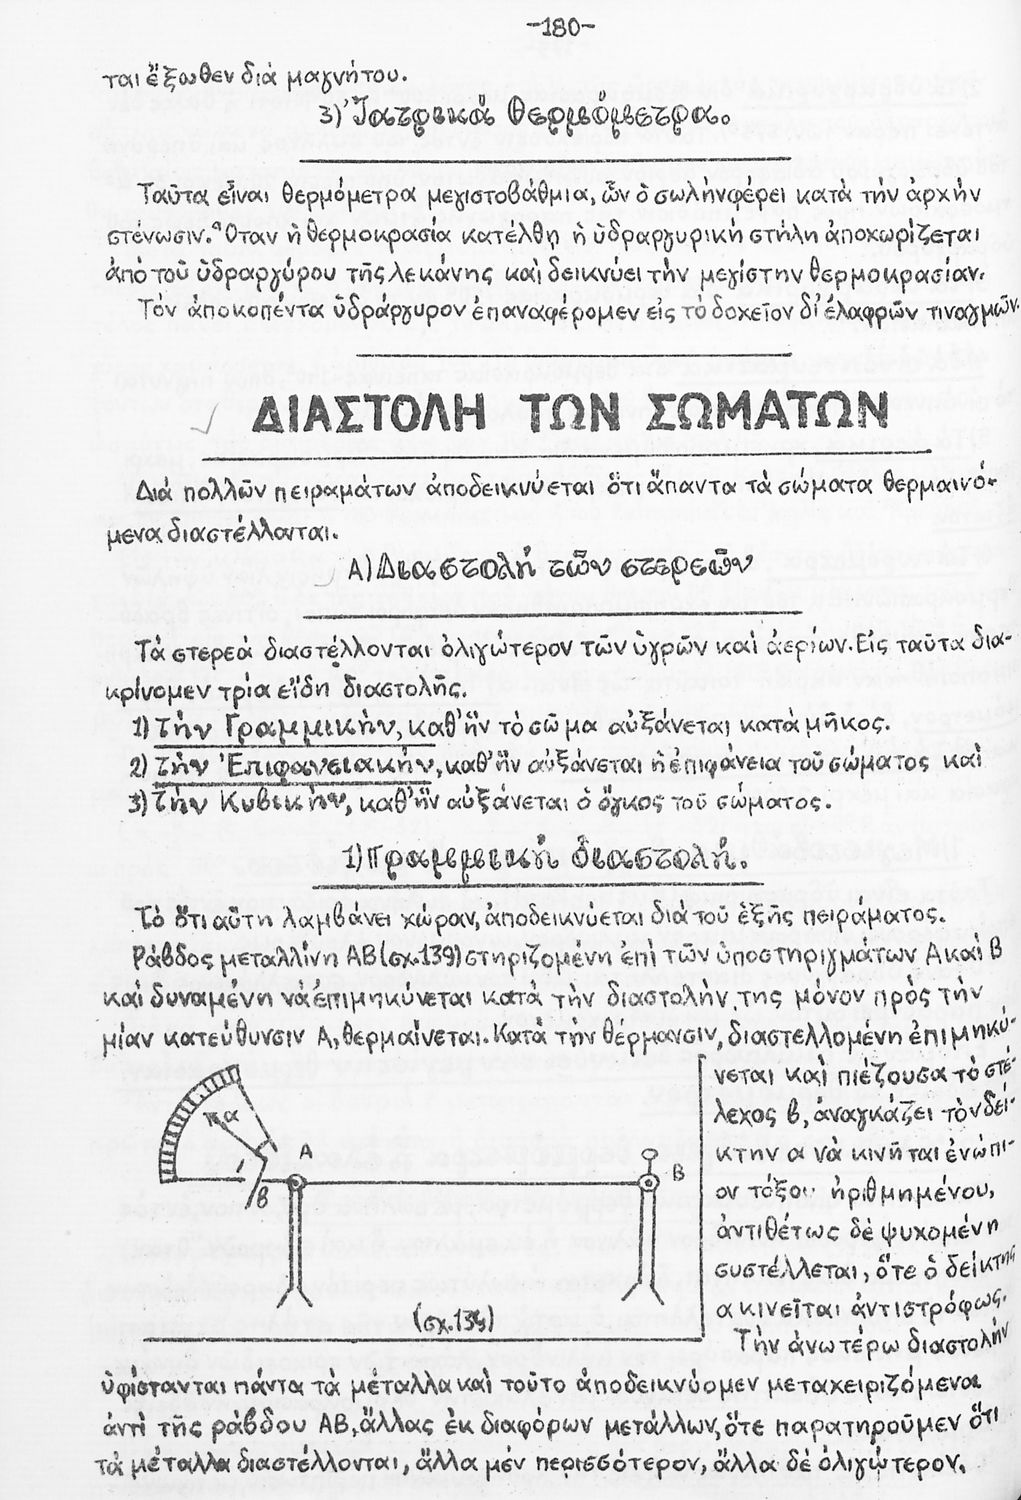 -180-
ται ἔξωθεν διά μαγνήτου.
3) Ἰατρικά θερμόμετρα.
Ταῦτα εἶναι θερμόμετρα μεγιστοβάθμια, ὧν ὁ σωλήν φέρει κατά τήν ἀρχήν
στένωσιν. Ὅταν ἡ θερμοκρασία κατέλθῃ ἡ ὑδραργυρική στήλη ἀποχωρίζεται
ἀπό τοῦ ὑδραργύρου τῆς λεκάνης καί δεικνύει τήν μεγίστην θερμοκρασίαν.
Τόν ἀποκοπέντα ὑδράργυρον ἐπαναφέρομεν εἰς τό δοχεῖον δι' ἐλαφρῶν τιναγμῶν.
ΔΙΑΣΤΟΛΗ ΤΩΝ ΣΩΜΑΤΩΝ
Διά πολλῶν πειραμάτων ἀποδεικνύεται ὅτι ἅπαντα τά σώματα θερμαινό-
μενα διαστέλλονται.
Α) Διαστολή τῶν στερεῶν
Τά στερεά διαστέλλονται ὀλιγώτερον τῶν ὑγρῶν καί ἀερίων. Εἰς ταῦτα δια-
κρίνομεν τρία εἴδη διαστολῆς.
1) Τήν Γραμμικήν, καθ' ἥν τό σῶμα αὐξάνεται κατά μῆκος.
2) Τήν Ἐπιφανειακήν, καθ' ἥν αὐξάνεται ἡ ἐπιφάνεια τοῦ σώματος καί
3) Τήν Κυβικήν, καθ' ἥν αὐξάνεται ὁ ὄγκος τοῦ σώματος.
1) Γραμμική διαστολή.
Τό ὅτι αὕτη λαμβάνει χώραν, ἀποδεικνύεται διά τοῦ ἑξῆς πειράματος.
Ράβδος μεταλλίνη ΑΒ (σχ.139) στηριζομένη ἐπί τῶν ὑποστηριγμάτων Α καί Β
καί δυναμένη νά ἐπιμηκύνεται κατά τήν διαστολήν της μόνον πρός τήν
μίαν κατεύθυνσιν Α, θερμαίνεται. Κατά τήν θέρμανσιν, διαστελλομένη ἐπιμηκύ-
νεται καί πιέζουσα τό στέ-
λεχος β, ἀναγκάζει τόν δεί-
κτην α νά κινῆται ἐνώπι-
ον τόξου ἠριθμημένου,
ἀντιθέτως δέ ψυχομένη
συστέλλεται, ὅτε ὁ δείκτης
α κινεῖται ἀντιστρόφως.
α
β
Α
Β
(σχ.139)
Τήν ἀνωτέρω διαστολήν
ὑφίστανται πάντα τά μέταλλα καί τοῦτο ἀποδεικνύομεν μεταχειριζόμενοι
ἀντί τῆς ράβδου ΑΒ, ἄλλας ἐκ διαφόρων μετάλλων, ὅτε παρατηροῦμεν ὅτι
τά μέταλλα διαστέλλονται, ἄλλα μέν περισσότερον, ἄλλα δέ ὀλιγώτερον.